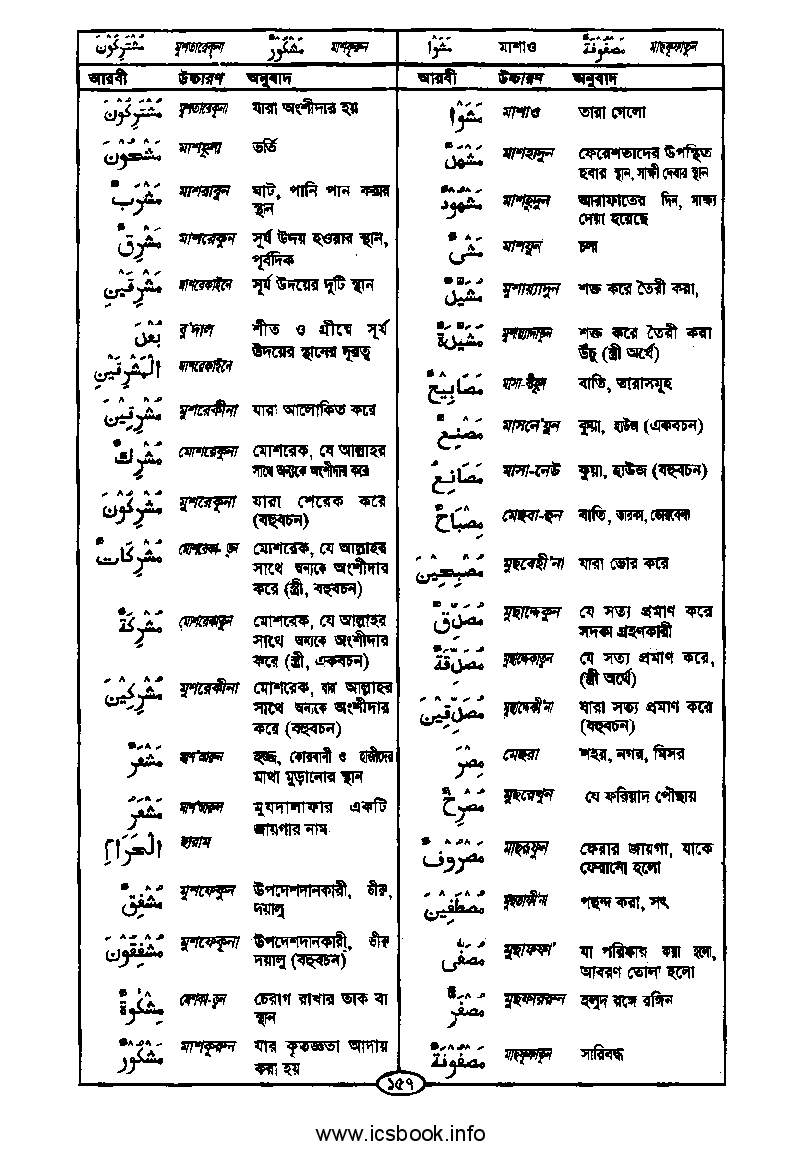 مُشْتَرِكُوْنَ মুশতারেকূনা مَشْكُوْرٌ মাশকূরুন
مَشَوْا মাশাও مَصْفُوْفَةٌ মাছফূফাতুন
আরবী উচ্চারণ অনুবাদ
مُشْتَرِكُوْنَ মুশতারেকূনা যারা অংশীদার হয়
مَشْحُوْنٌ মাশহূনা ভর্তি
مَشْرَبٌ মাশরাবুন ঘাট, পানি পান করার
স্থান
مَشْرِقٌ মাশরেকুন সূর্য উদয় হওয়ার স্থান,
পূর্বদিক
مَشْرِقَيْنِ মাশরেকাইনে সূর্য উদয়ের দুটি স্থান
بُعْدَ বু'দাল শীত ও গ্রীষ্মে সূর্য
উদয়ের স্থানের দূরত্ব
الْمَشْرِقَيْنِ মাশরেকাইনে
مُشْرِقِيْنَ মুশরেকীনা যারা আলোকিত করে
مُشْرِكٌ মোশরেকুনা মোশরেক, যে আল্লাহর
সাথে অন্যকে অংশীদার করে
مُشْرِكُوْنَ মুশরেকূনা যারা শেরেক করে
(বহুবচন)
مُشْرِكَاتٌ মোশরেকা-তুন মোশরেক, যে আল্লাহর
সাথে অন্যকে অংশীদার
করে (স্ত্রী, বহুবচন)
مُشْرِكَةٌ মোশরেকাতুন মোশরেক, যে আল্লাহর
সাথে অন্যকে অংশীদার
করে (স্ত্রী, একবচন)
مُشْرِكِيْنَ মুশরেকীনা মোশরেক, যারা আল্লাহর
সাথে অন্যকে অংশীদার
করে (বহুবচন)
مَشْعَرٌ মাশ'আরুন হজ্জ, কোরবানী ও হাজীদের
মাথা মুড়ানোর স্থান
مَشْعَرُ মাশ'আরুন মুযদালাফার একটি
জায়গার নাম
الْحَرَامِ হারাম
مُشْفِقٌ মুশফেকুন উপদেশদানকারী, ভীরু,
দয়ালু
مُشْفِقُوْنَ মুশফেকূনা উপদেশদানকারী, ভীরু
দয়ালু (বহুবচন)
مِشْكٰوةٌ মেশকা-তুন চেরাগ রাখার তাক বা
স্থান
مَشْكُوْرٌ মাশকূরুন যার কৃতজ্ঞতা আদায়
করা হয়
আরবী উচ্চারণ অনুবাদ
مَشَوْا মাশাও তারা গেলো
مَشْهَدٌ মাশহাদুন ফেরেশতাদের উপস্থিত
হবার স্থান, সাক্ষী দেবার স্থান
مَشْهُوْدٌ মাশহূদুন আরাফাতের দিন, সাক্ষ্য
দেয়া হয়েছে
مَشْىٌ মাশয়ুন চলা
مُشَيَّدٌ মুশায়্যাদুন শক্ত করে তৈরী করা,
مُشَيَّدَةٌ মুশায়্যাদাতুন শক্ত করে তৈরী করা
উঁচু (স্ত্রী অর্থে)
مَصَابِيْحُ মাসা-বীহু বাতি, তারাসমূহ
مَصْنَعٌ মাসনে'য়ুন কুয়া, হাউজ (একবচন)
مَصَانِعُ মাসা-নেউ কুয়া, হাউজ (বহুবচন)
مِصْبَاحٌ মেছবা-হুন বাতি, তারকা, ভোরবেলা
مُصْبِحِيْنَ মুছবেহী'না যারা ভোর করে
مُصَدِّقٌ মুছাদ্দেকুন যে সত্য প্রমাণ করে
সদকা গ্রহণকারী
مُصَدِّقَةٌ মুছাদ্দেকাতুন যে সত্য প্রমাণ করে,
(স্ত্রী অর্থে)
مُصَدِّقِيْنَ মুছাদ্দেকী'না যারা সত্য প্রমাণ করে
(বহুবচন)
مِصْرَ মেছরা শহর, নগর, মিসর
مُصْرِخٌ মুছরেখুন যে ফরিয়াদ পৌছায়
مَصْرُوْفٌ মাছরূফুন ফেরার জায়গা, যাকে
ফেরানো হলো
مُصْطَفَيْنَ মুছতাফাই'না পছন্দ করা, সৎ
مُصَفًّى মুছাফফা' যা পরিষ্কার করা হলো,
আবরণ তোলা হলো
مُصْفَرٌّ মুছফাররুন হলুদ রঙ্গে রঙ্গিন
مَصْفُوْفَةٌ মাছফূফাতুন সারিবদ্ধ
১৫৭
www.icsbook.info